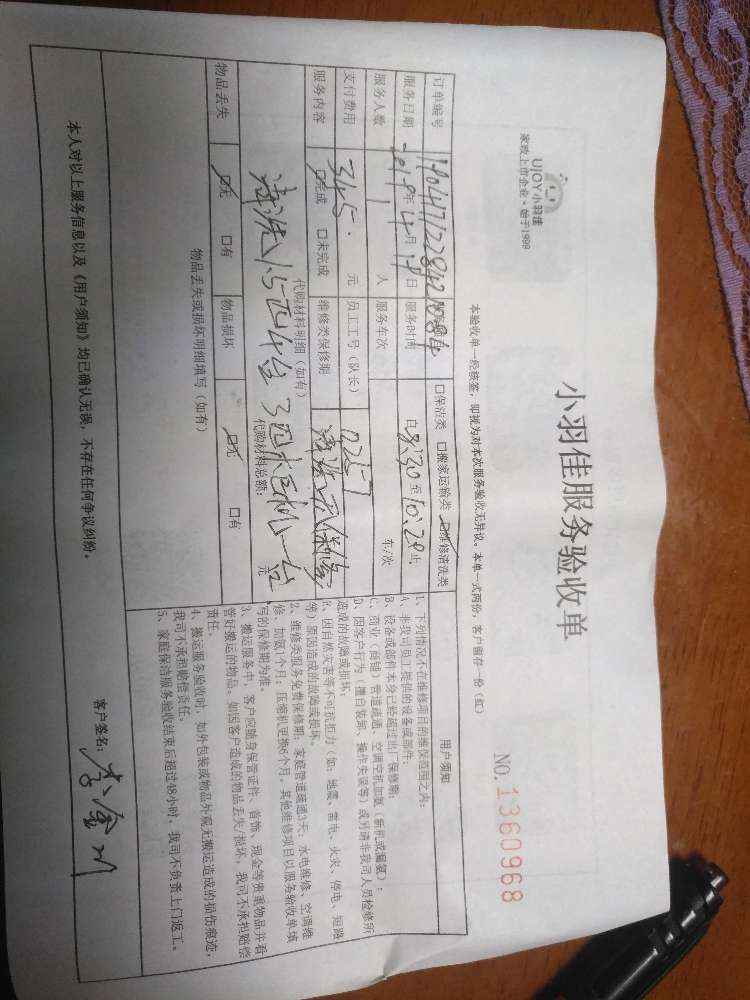 UJOY小羽佳
家政上市企业·始于1999
小羽佳服务验收单
NO.1360968
本验收单一经核签，即视为对本次服务验收无异议。本单一式两份，客户留存一份（红）
订单编号
□保洁类 □搬家运输类 □维修清洗类
服务日期 2019年4月18日 服务时间 自8:30至10:28止
服务人数 1 人 服务车次 车/次
支付费用 345. 元 员工工号（队长） 0257
服务内容 □完成 □未完成 维修类保修期 清洗无保修
代购材料明细（如有）
清洗1.5匹4台 3匹柜机一台
代购材料总额： 元
物品丢失 □无 □有 物品损坏 □无 □有
物品丢失或损坏明细填写（如有）
用户须知
1、下列情况不在维修项目的维保范围之内：
A、非我司员工提供的设备或部件；
B、设备或部件本身已经超过出厂保修期；
C、商业（商铺）管道疏通、空调空机加氨（新机或漏氨）；
D、因客户行为（擅自装卸、操作失误等）或另请非我司人员检修所
造成的故障或损坏；
E、因自然灾害等不可抗拒力（如：地震、雷电、火灾、停电、短路
等）原因造成的故障或损坏。
2、维修类服务免费保修期：家庭管道疏通3天；水电维修、空调维
修、加氨1个月；压缩机更换6个月。其他维修项目以服务验收单填
写的保修期为准。
3、搬运服务中，客户应随身保管证件、首饰、现金等贵重物品并看
管好搬运的物品，如因客户造成的物品丢失/损坏，我司不承担赔偿
责任。
4、搬运服务验收时，如外包装或物品外观无搬运造成的损伤痕迹，
我司不承担赔偿责任。
5、家庭保洁服务验收结束后超过48小时，我司不负责上门返工。
本人对以上服务信息以及《用户须知》均已确认无误，不存在任何争议纠纷。
客户签名：李金川